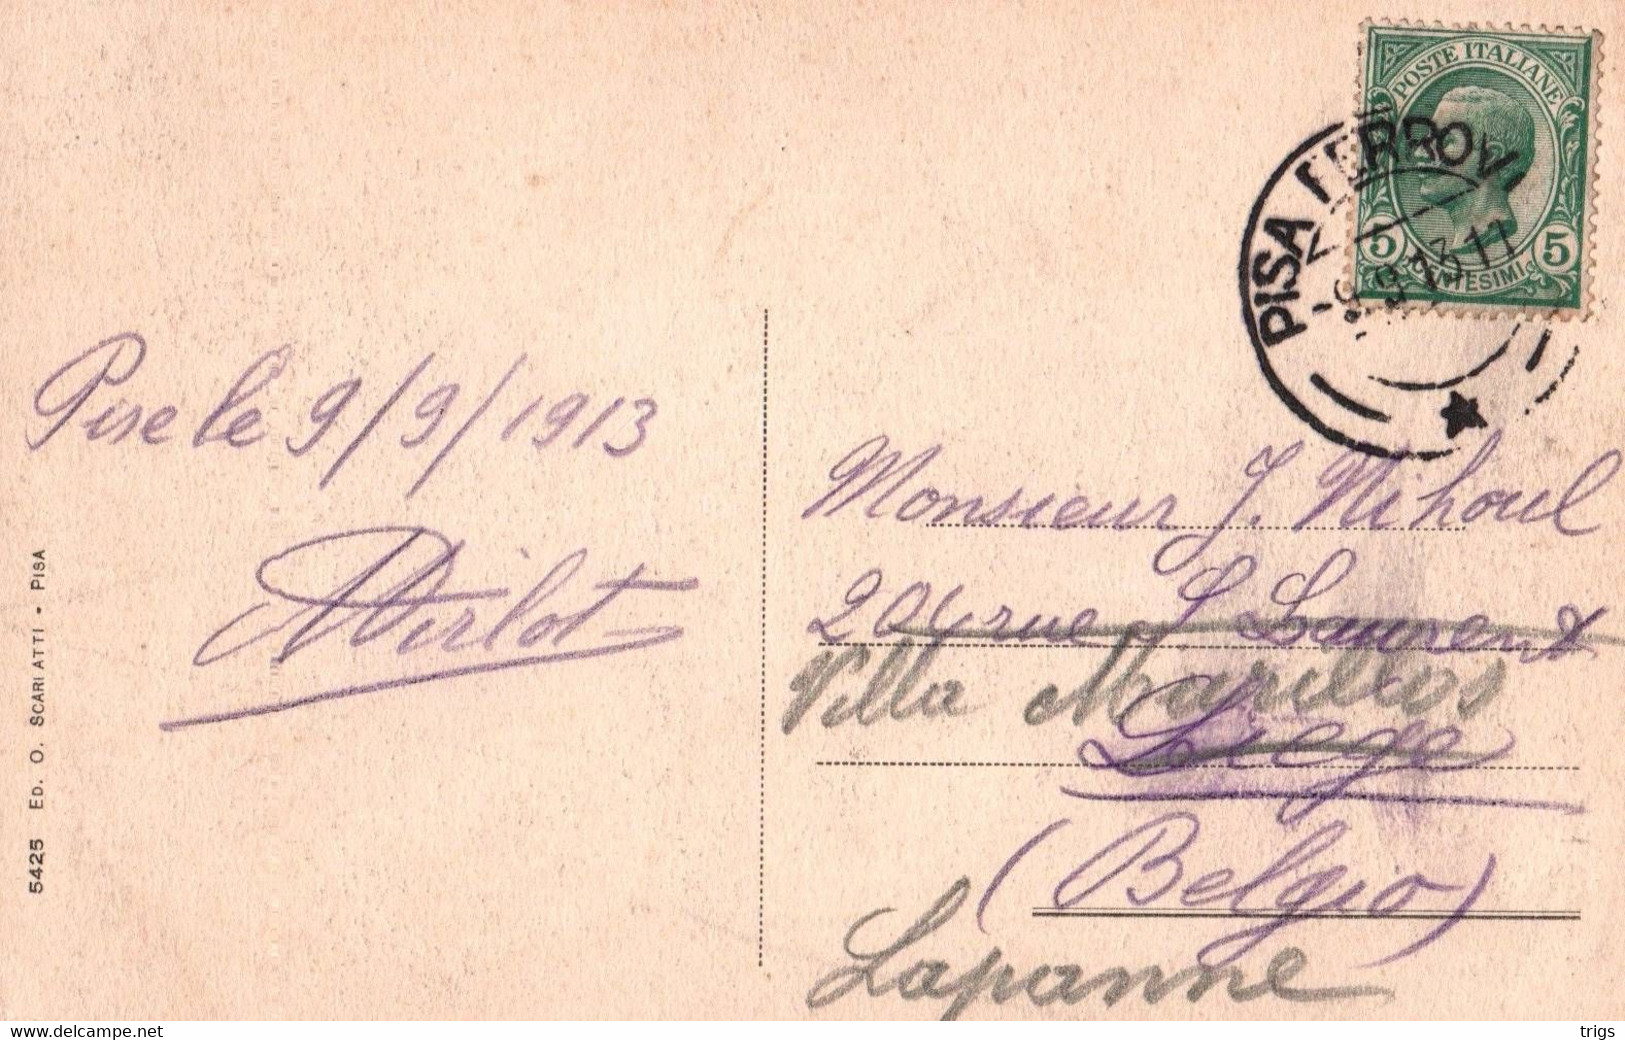 POSTE ITALIANE
5 5
CENTESIMI
PISA FERROVI
9.9.13.11
Pise le 9/9/1913
Monsieur J. Nihoul
204 rue S Laurent
Villa
Liege
(Belgio)
Lapanne
5425 ED. O. SCARIATTI - PISA
www.delcampe.net
trigs